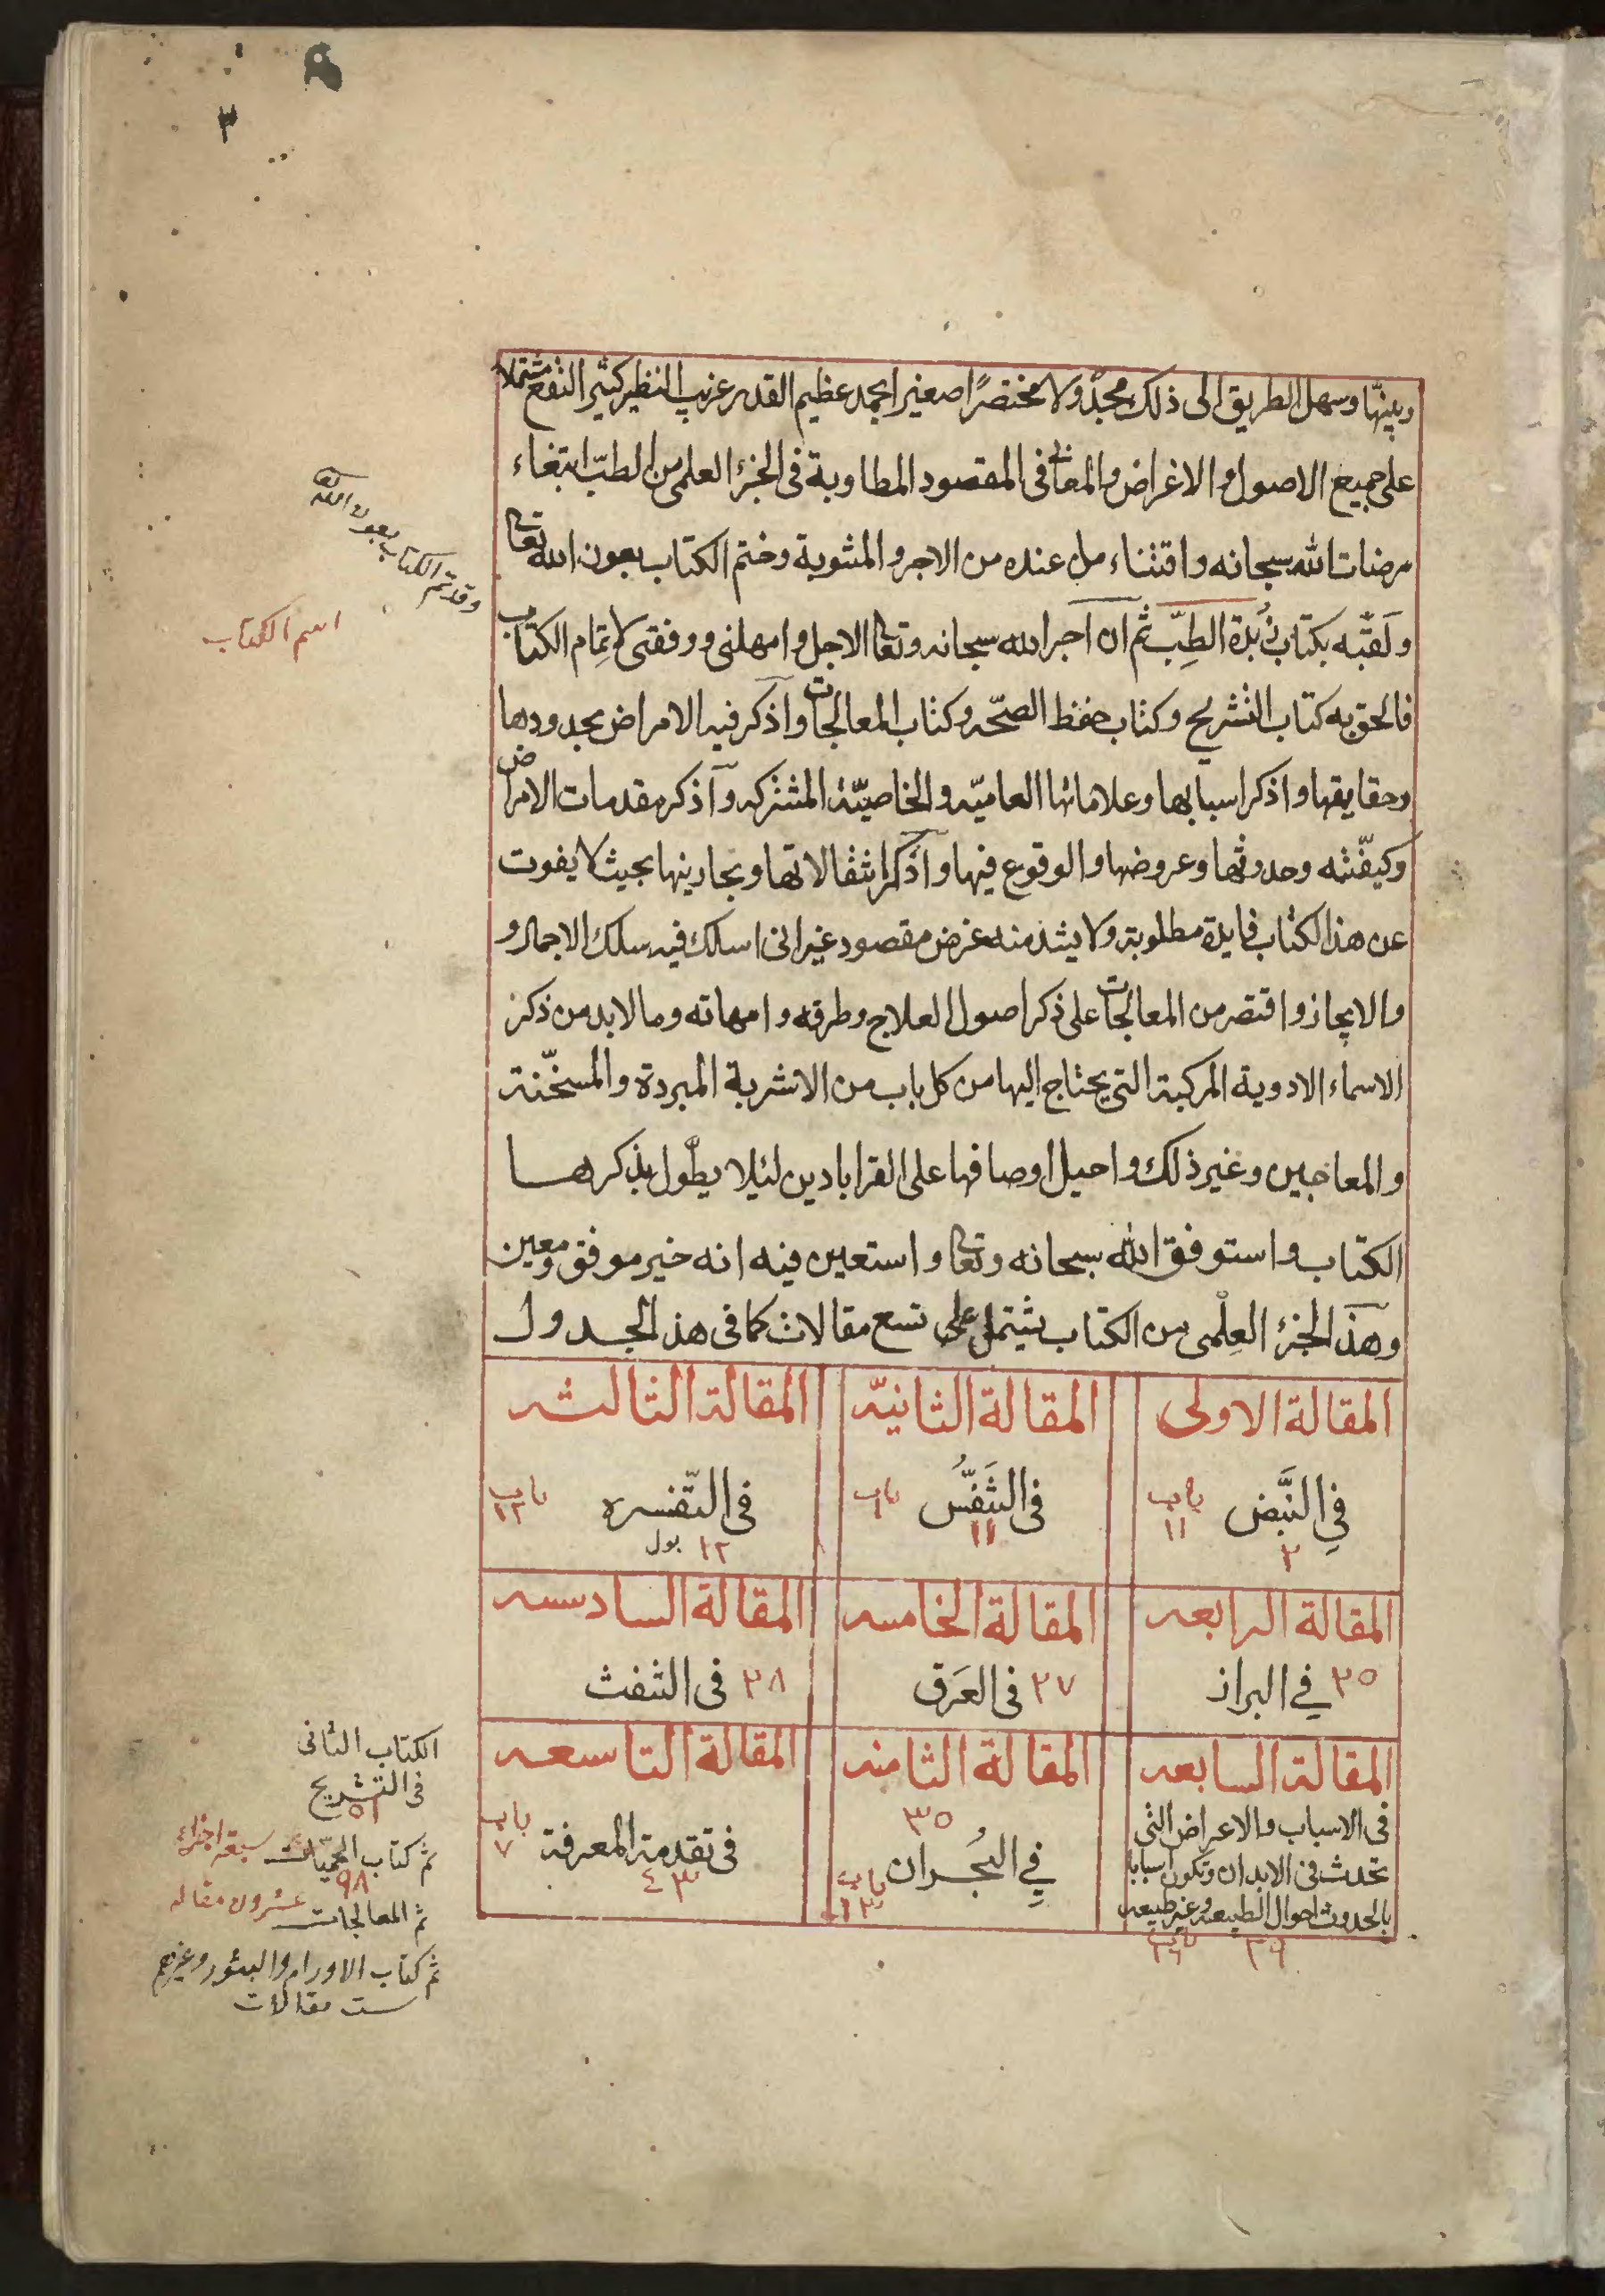 ٣
وبينها وسهل الطريق الى ذلك مجدولا مختصرًا صغير الحجم عظيم القدر غريب النظير كثير النفع مشتملا
على جميع الاصول والاغراض والمعانى فى المقصود المطلوبة فى الجزء العلمى من الطبّ ابتغاء
مرضات الله سبحانه واقتناء من عنده من الاجر والمثوبة وختم الكتاب بعون الله تعا
ولقّبه بكتاب زُبدة الطِبّ ثم ان اخر الله سبحانه وتعا الاجل وامهلنى ووفقنى لاتمام الكتاب
فالحق به كتاب التشريح وكتاب حفظ الصحّه وكتاب المعالجات واذكر فيه الامراض بحدودها
وحقايقها واذكر اسبابها وعلاماتها العاميّه والخاصيّة المشتركه واذكر مقدمات الامراض
وكيفّيته وحدوثها وعروضها والوقوع فيها واذكر انتقالاتها وبحارينها بحيث لا يفوت
عن هذا الكتاب فايدة مطلوبة ولا يشذ منه غرض مقصود غير انى اسلك فيه سلك الاجمال و
والايجاز واقتصر من المعالجات على ذكر اصول العلاج وطرقه وامهاته وما لابد من ذكر
الاسماء الادوية المركبة التى يحتاج اليها من كل باب من الاشربة المبردة والمسخّنة
والمعاجين وغير ذلك واحيل اوصافها على القراباذين لئيلا يطّول بذكرها
الكتاب واستوفق الله سبحانه وتعا واستعين فيه انه خير موفق ومعين
وهذا الجزء العِلْمى من الكتاب يشتمل على تسع مقالات كما فى هذ الجدول
وقد تم الكتاب بعون الله
اسم الكتاب
المقالة الاولى المقالة الثانيّه المقالة الثالثه
فى النَّبض باب ١١ فى التَنَفّسُ باب فى التّفسره باب ١٢
٣ ١١ ١٢ بول
المقالة الرابعه المقالة الخامسه المقالة السادسه
٢٥ في البراز ٢٧ فى العَرَق ٢٨ فى النفث
المقالة السابعه المقالة الثامنه المقالة التاسعه
فى الاسباب والاعراض التى
تحدث فى الابدان وتكون اسبابا
بالحدوث احوال الطبيعه وغير طبيعه
باب ٢٩
٣٥
فِي البُحران باب ١٣
فى تقدمة المعرفة باب ٧
٤٣
الكتاب الثانى
فى التشريح
٥١
ثم كتاب الحميّات سبعة اجزاء
٩٨
ثم المعالجات عشرون مقاله
ثم كتاب الاورام والبثور وغيرهم
ست مقالات